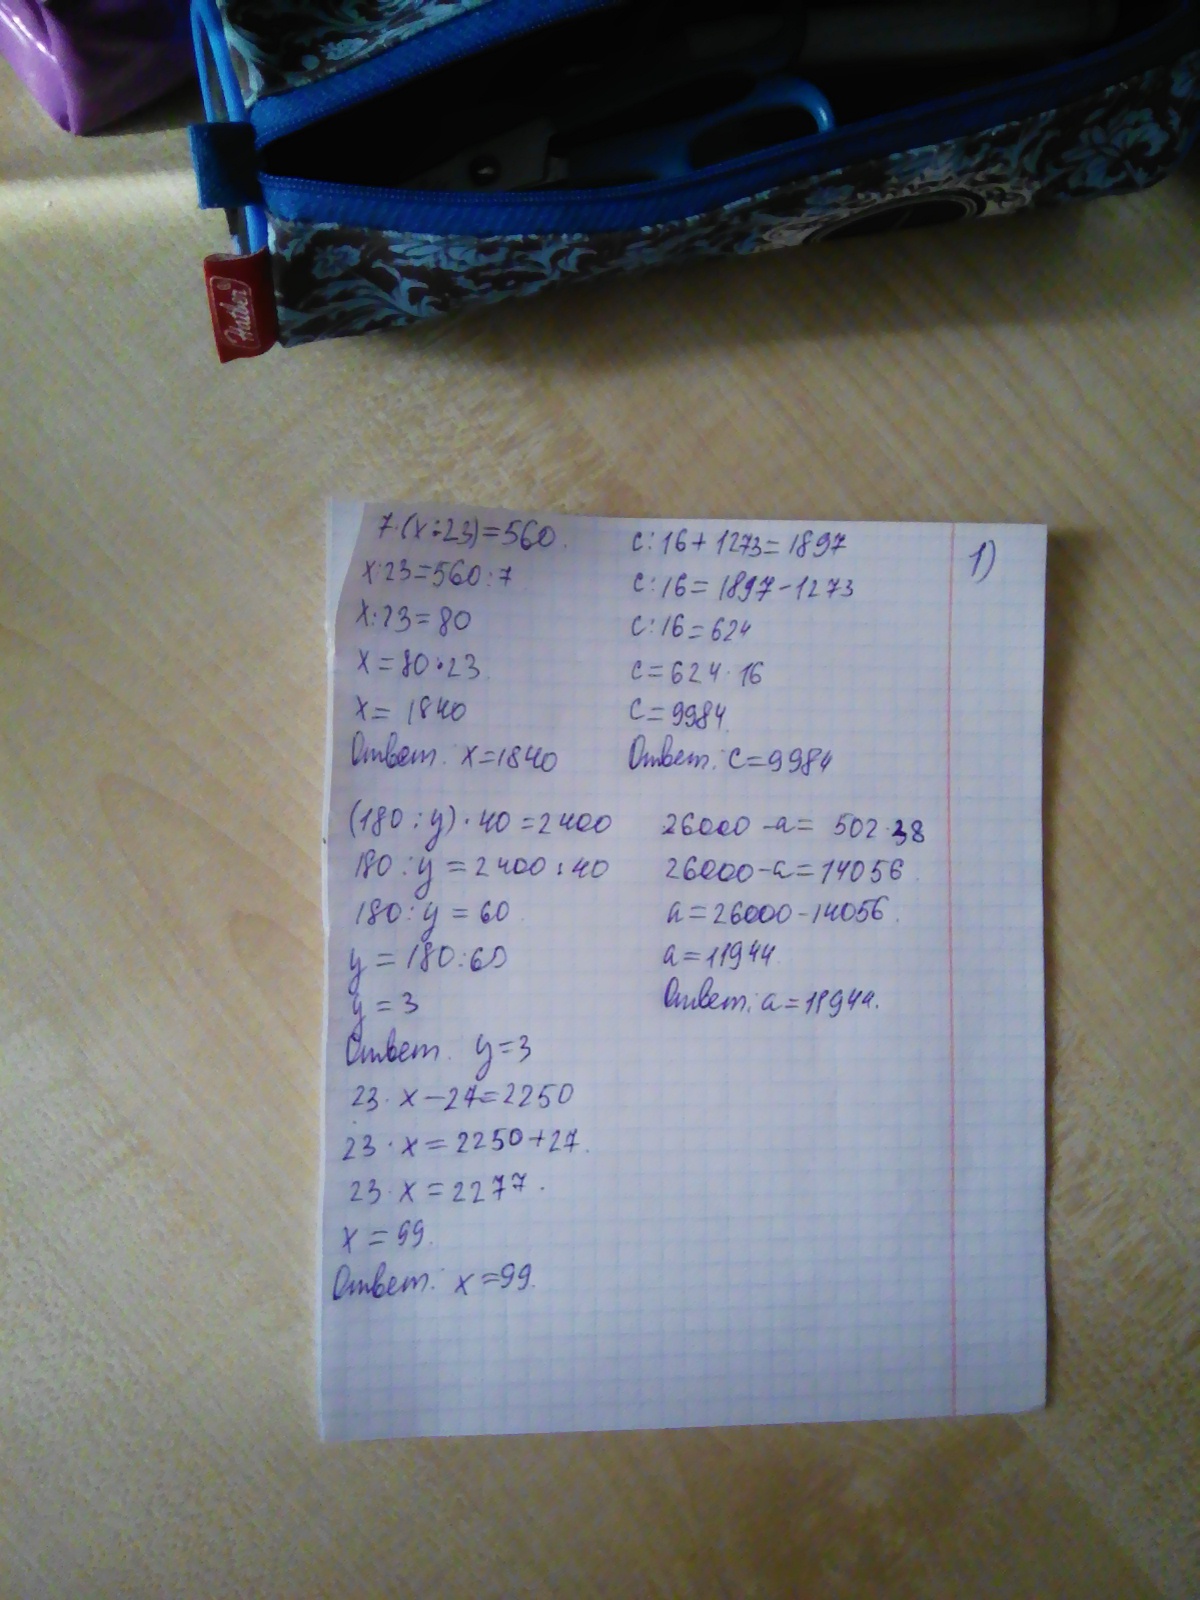 Hatber
1)
7·(x:23)=560.
x:23=560:7
x:23=80
x=80·23.
x=1840
Ответ: x=1840
c:16+1273=1897
c:16=1897-1273
c:16=624
c=624·16
c=9984.
Ответ: c=9984
(180:y)·40=2400
180:y=2400:40
180:y=60.
y=180:60
y=3
Ответ. y=3
26000-a=502·38
26000-a=14056.
a=26000-14056.
a=11944.
Ответ: a=11944.
23·x-27=2250
23·x=2250+27.
23·x=2277.
x=99.
Ответ: x=99.